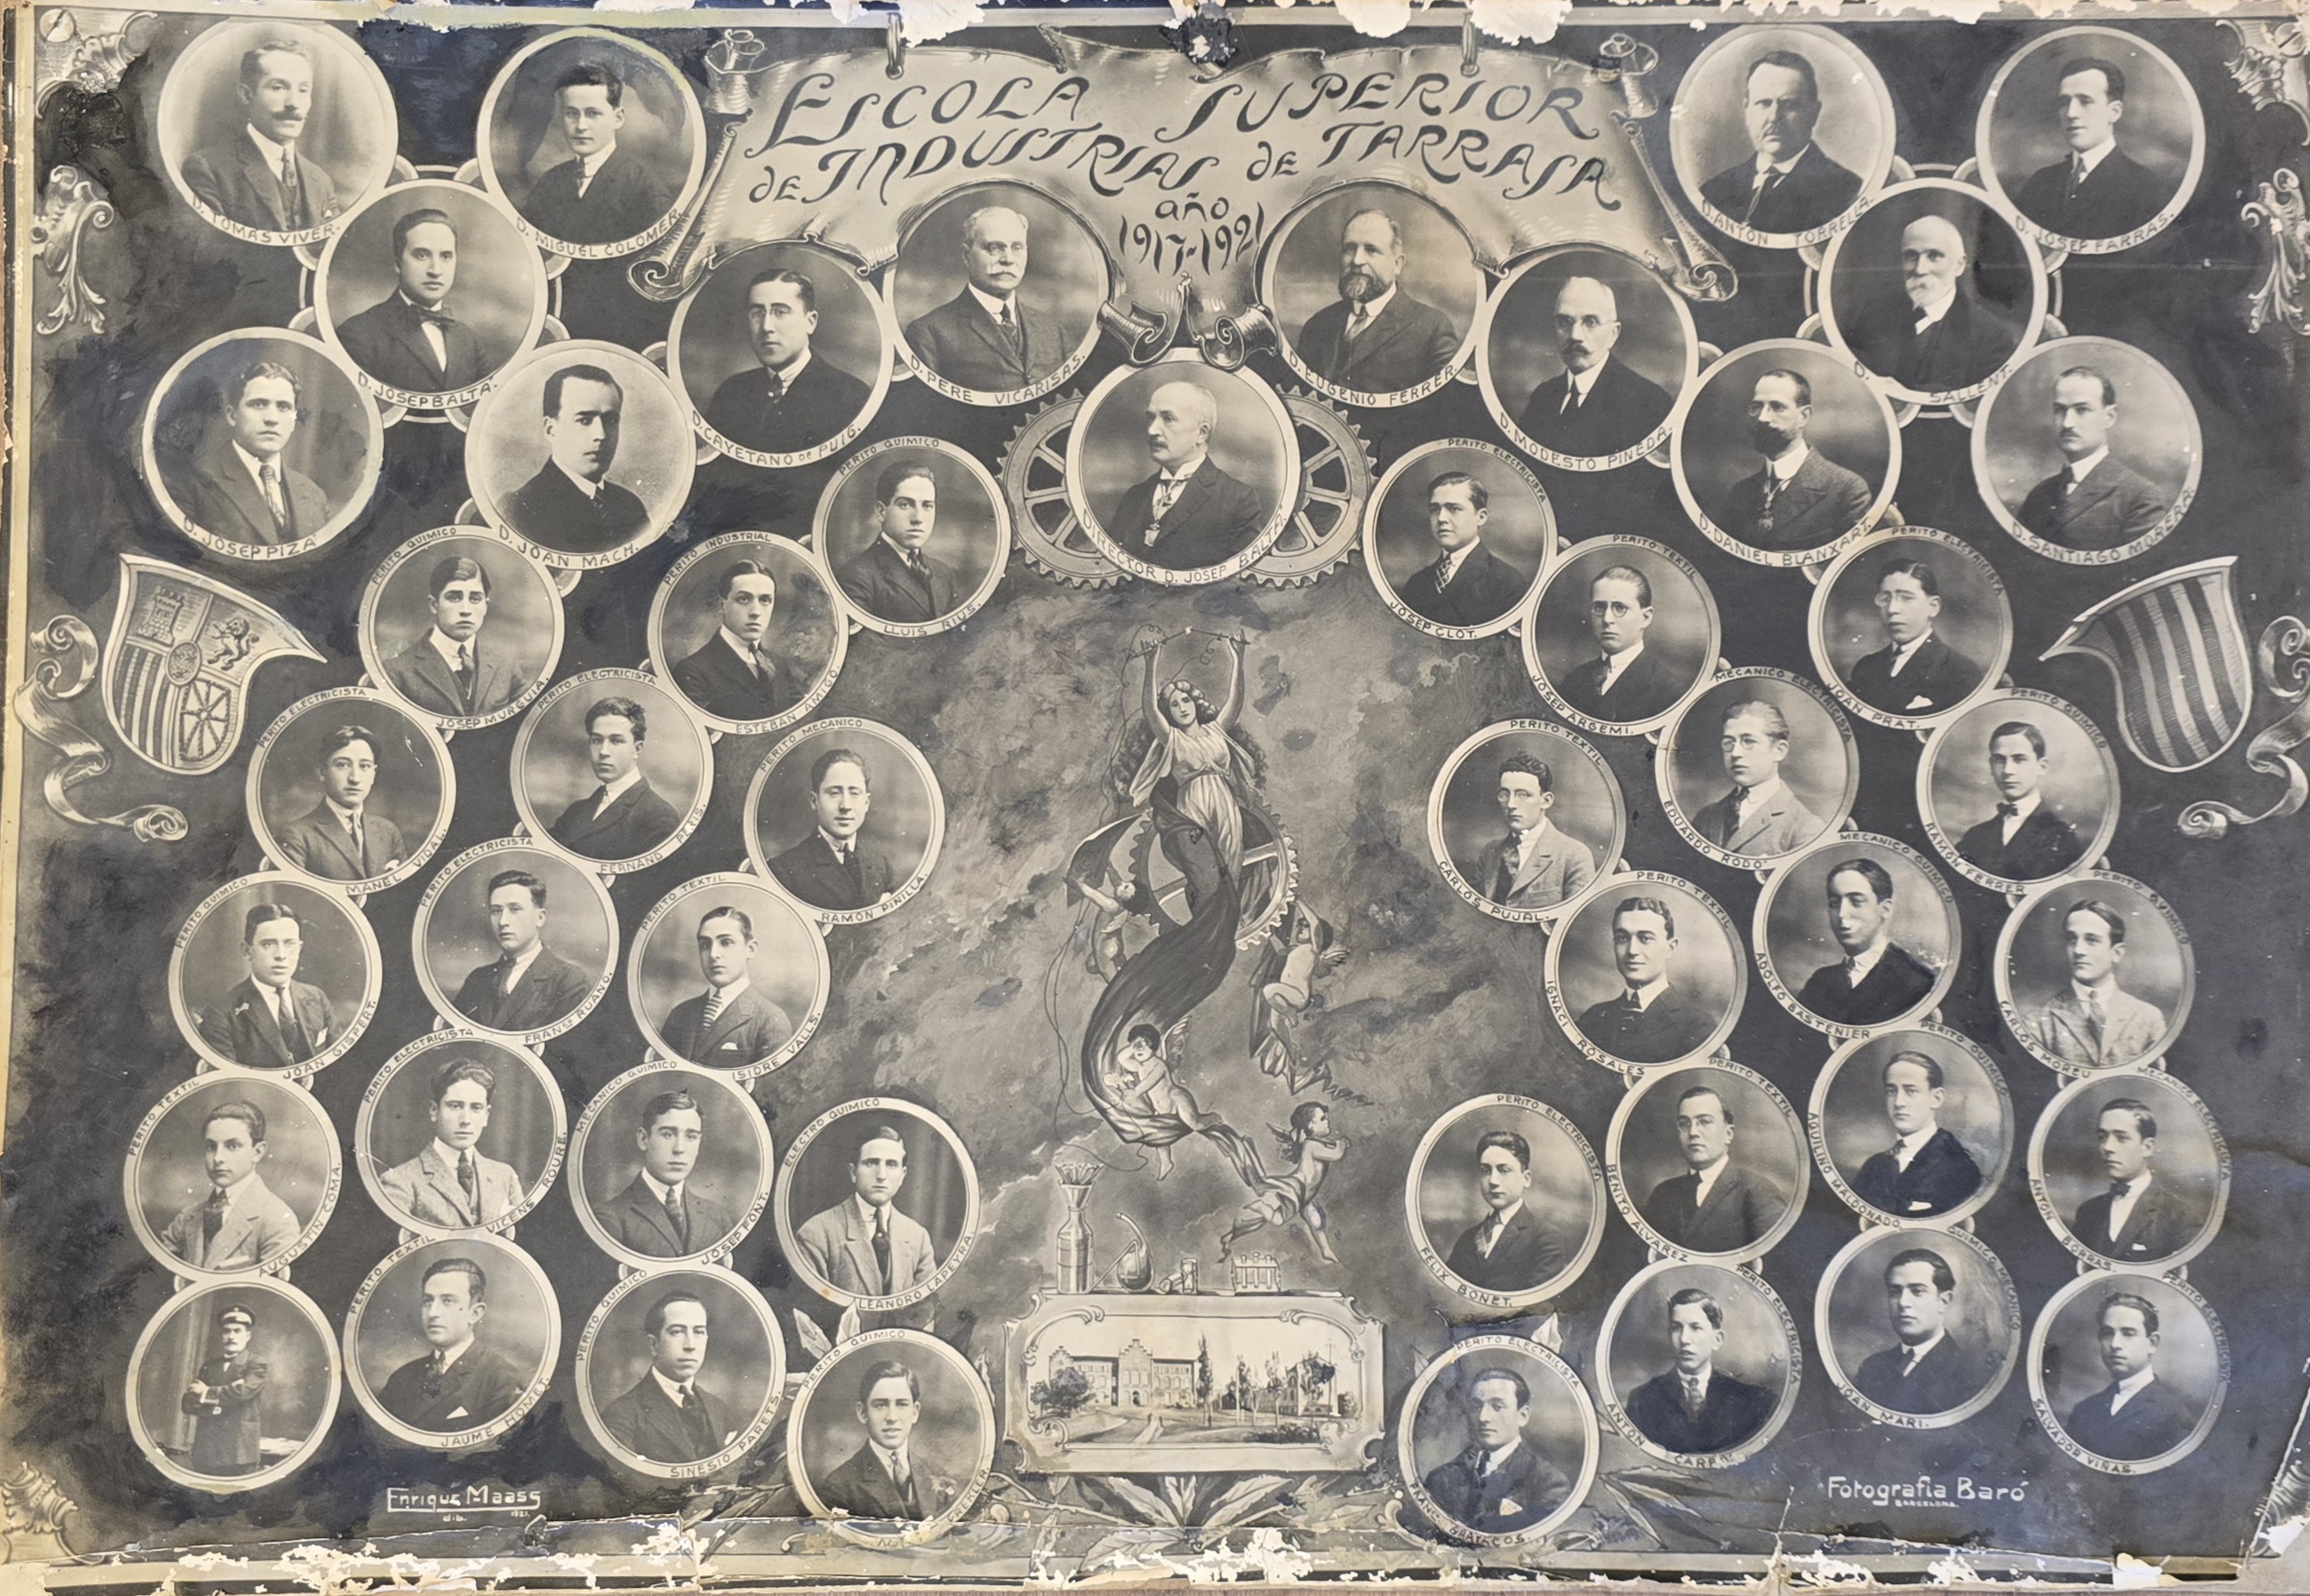 ESCOLA SUPERIOR
DE INDUSTRIAS DE TARRASA
año
1917-1921
D. TOMAS VIVER.
D. MIGUEL COLOMER.
D. ANTON TORRELLA.
D. JOSEP FARRAS.
D. JOSEP BALTA.
D. CAYETANO DE PUIG.
D. PERE VICARISAS.
D. EUGENIO FERRER.
D. MODESTO PINEDA.
D. SALLENT.
D. JOSEP PIZA
D. JOAN MACH.
DIRECTOR D. JOSEP BALTA.
D. DANIEL BLANXART.
D. SANTIAGO MORERA.
PERITO QUIMICO
JOSEP MURGUIA.
PERITO INDUSTRIAL
ESTEBAN AMIGO
PERITO QUIMICO
LLUIS RIUS.
PERITO ELECTRICISTA
JOSEP CLOT.
PERITO TEXTIL
JOSEP ARGEMI.
PERITO ELECTRICISTA
JOAN PRAT.
PERITO ELECTRICISTA
MANEL VIDAL.
PERITO ELECTRICISTA
FERNAND
PERITO MECANICO
RAMON PINILLA.
PERITO TEXTIL
CARLOS PUJAL.
MECANICO ELECTRICISTA
EDUARDO RODO
PERITO QUIMICO
RAMON FERRER
PERITO QUIMICO
JOAN GISPERT.
PERITO ELECTRICISTA
FRANSC RUANO.
PERITO TEXTIL
ISIDRE VALLS.
PERITO TEXTIL
IGNACI ROSALES
MECANICO QUIMICO
ADOLFO BASTENIER
PERITO QUIMICO
CARLOS MOREU
PERITO TEXTIL
AUGUSTIN COMA.
PERITO ELECTRICISTA
VICENS ROURE.
MECANICO QUIMICO
JOSEP FONT.
ELECTRO QUIMICO
LEANDRO LAPEYRA.
PERITO ELECTRICISTA
FELIX BONET.
PERITO TEXTIL
BENITO ALVAREZ
PERITO QUIMICO
AQUILINO MALDONADO
MECANICO ELECTRICISTA
ANTON BORRAS
PERITO TEXTIL
JAUME HOMET.
PERITO QUIMICO
SINESIO PARETS.
PERITO QUIMICO
PERITO ELECTRICISTA
PERITO ELECTRICISTA
ANTON
QUIMICO MECANICO
JOAN MARI.
PERITO ELECTRICISTA
SALVADOR VIÑAS.
Enrique Maass
dib. 1921.
Fotografia Baró
BARCELONA.